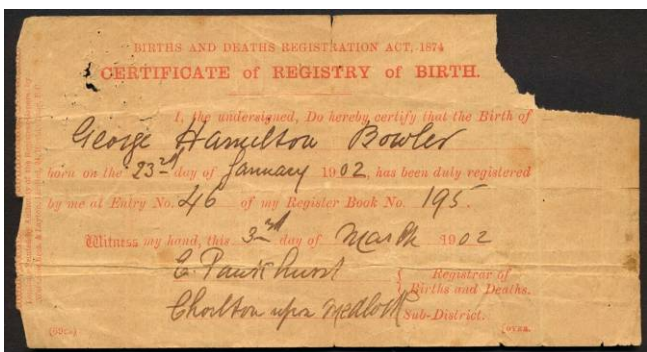 BIRTHS AND DEATHS REGISTRATION ACT, 1874
CERTIFICATE of REGISTRY of BIRTH.
I, the undersigned, Do hereby certify that the Birth of
George Hamilton Bowler
born on the 23rd day of January 1902, has been duly registered
by me at Entry No. 46 of my Register Book No. 195.
Witness my hand, this 3rd day of March 1902
E. Pankhurst { Registrar of
Births and Deaths.
Chorlton upon Medlock Sub-District.
[OVER.